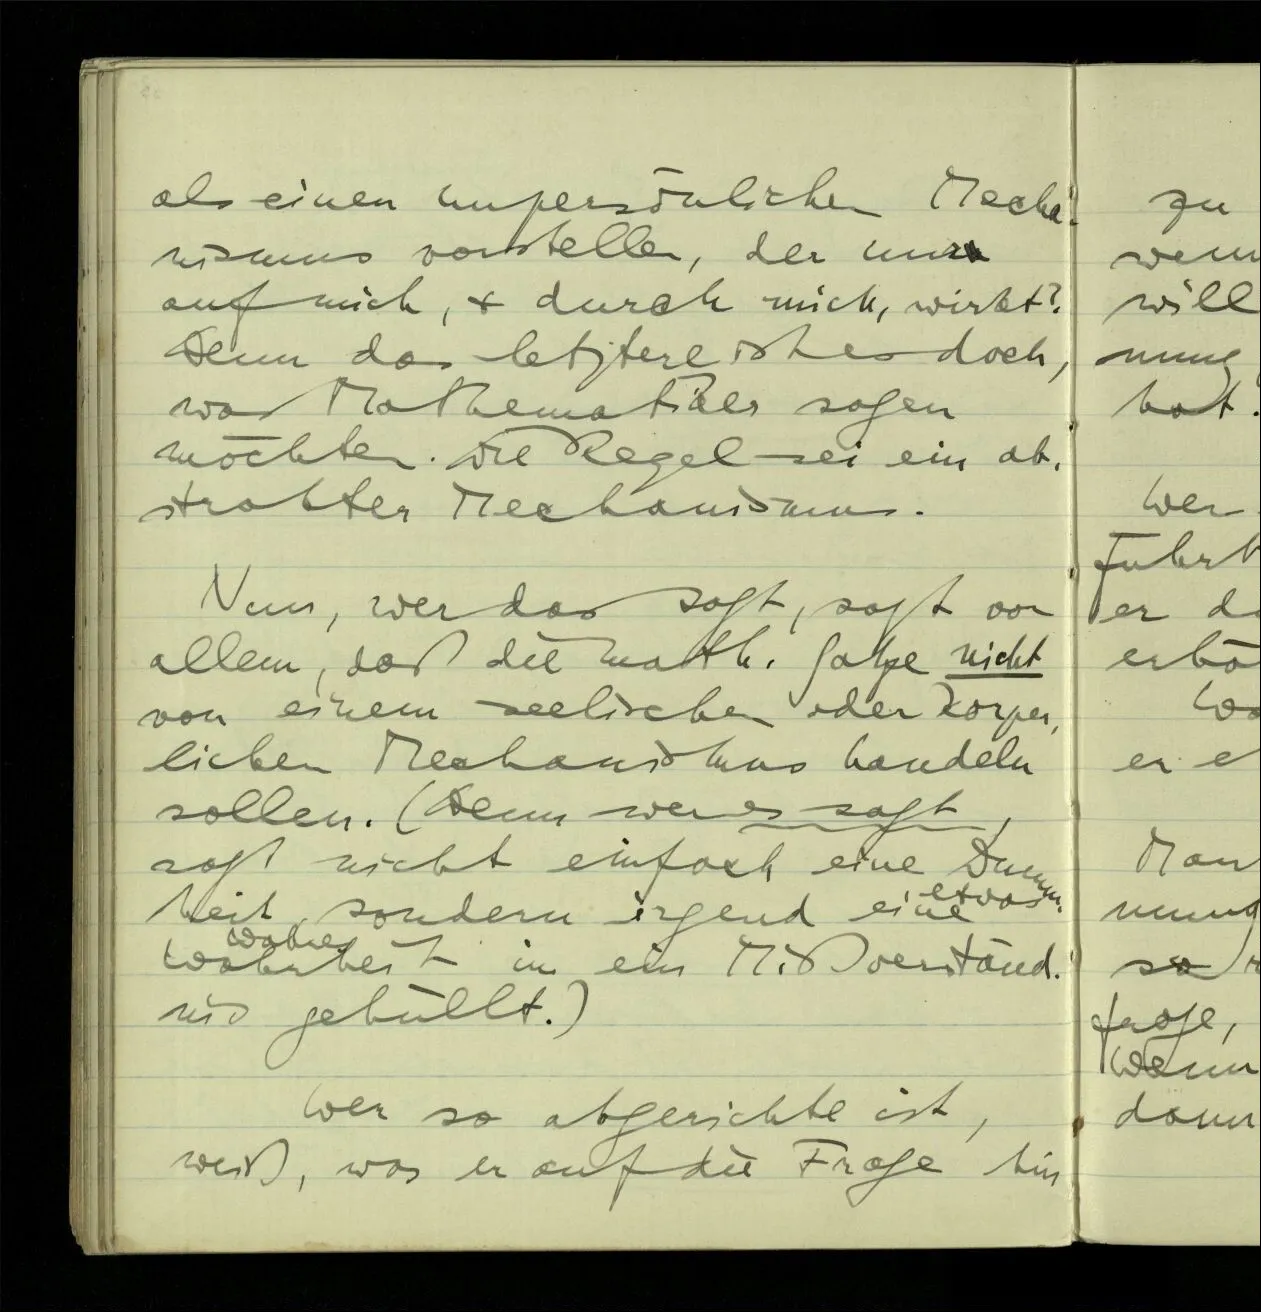 als einen unpersönlichen Mecha-
nismus vorstellen, der nur
auf mich, + durch mich, wirkt?
Denn das letztere ist es doch,
was Mathematiker sagen
möchten. Die Regel sei ein ab-
strakter Mechanismus.
Nun, wer das sagt, sagt vor
allem, daß die math. Sätze nicht
von einem seelischen oder körper-
lichen Mechanismus handeln
sollen. (Denn wer es sagt,
sagt nicht einfach eine Dumm-
heit, sondern irgend eine etwas
Wahrheit wahres in ein Mißverständ-
nis gehüllt.)
Wer so abgerichtet ist,
weiß, was er auf die Frage hin
zu
wenn
will
nung
hat.
Wer
Führt
er da
erhö
Wa
er e
Man
nung
so
frage,
Wenn
dann